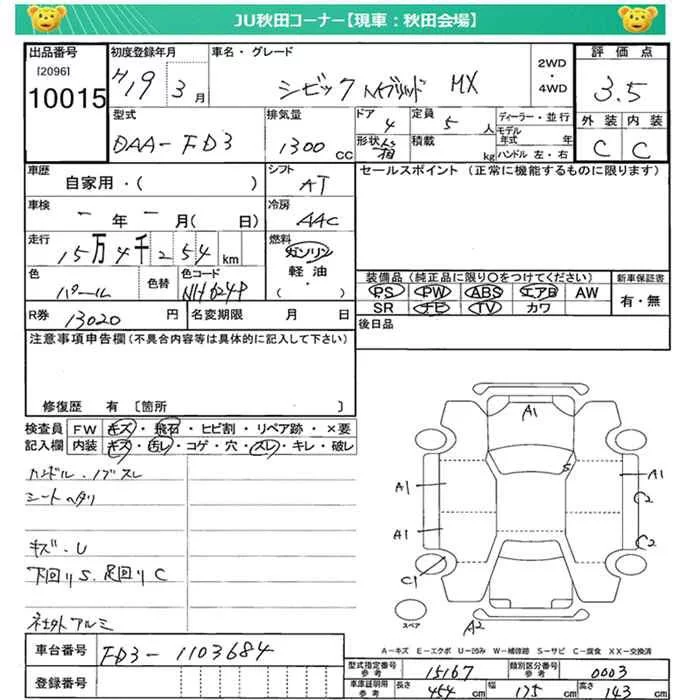 JU秋田コーナー【現車：秋田会場】
出品番号
[2096]
10015
初度登録年月
H19 3月
車名・グレード
シビック ハイブリッド MX
2WD
・
4WD
評価点
3.5
外装 内装
C C
型式
DAA-FD3
排気量
1300 CC
ドア
4
形状
箱
定員
5 人
積載
kg
ディーラー・並行
モデル年式 年
ハンドル 左・右
車歴
自家用・( )
シフト
AT
セールスポイント (正常に機能するものに限ります)
車検
ー年ー月( 日)
冷房
AAC
走行
15万4千254km
燃料
ガソリン
軽油・
( )
色
パール
色替
色コード
NH624P
装備品 (純正品に限り○をつけてください)
PS PW ABS エアB AW
SR ナビ TV カワ
新車保証書
有・無
R券
13020円
名変期限 月 日
後日品
注意事項申告欄(不具合内容等は具体的に記入して下さい)
修復歴 有 〔箇所 〕
検査員記入欄
FW キズ・飛石・ヒビ割・リペア跡・×要
内装 キズ・汚レ・コゲ・穴・スレ・キレ・破レ
ハンドル・ノブスレ
シートヘタリ
キズ・U
下回りS. 足回りC
社外アルミ
A1
S
A1
A1
C2
A1
C2
C1
スペア
A2
A-キズ E-エクボ U-凹み W-補修跡 S-サビ C-腐食 XX-交換済
車台番号
FD3-1103684
登録番号
型式指定番号 参考
15167
類別区分番号 参考
0003
車庫証明用 参考
長さ 454 cm
幅 175 cm
高さ 143 cm